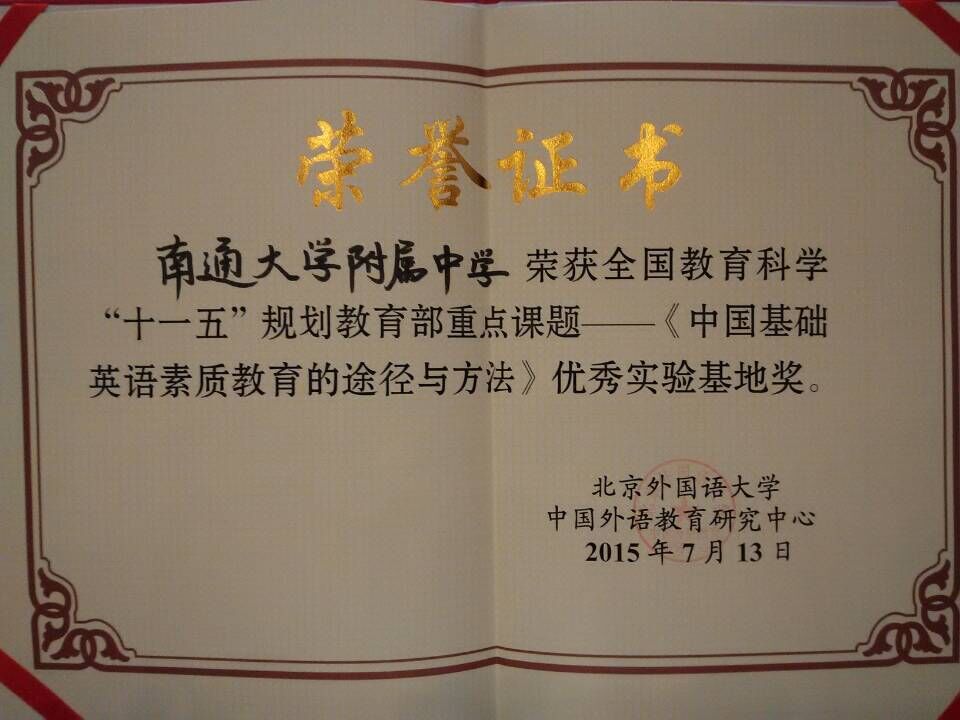 荣誉证书
南通大学附属中学 荣获全国教育科学
“十一五”规划教育部重点课题——《中国基础
英语素质教育的途径与方法》优秀实验基地奖。
北京外国语大学
中国外语教育研究中心
2015 年 7 月 13 日